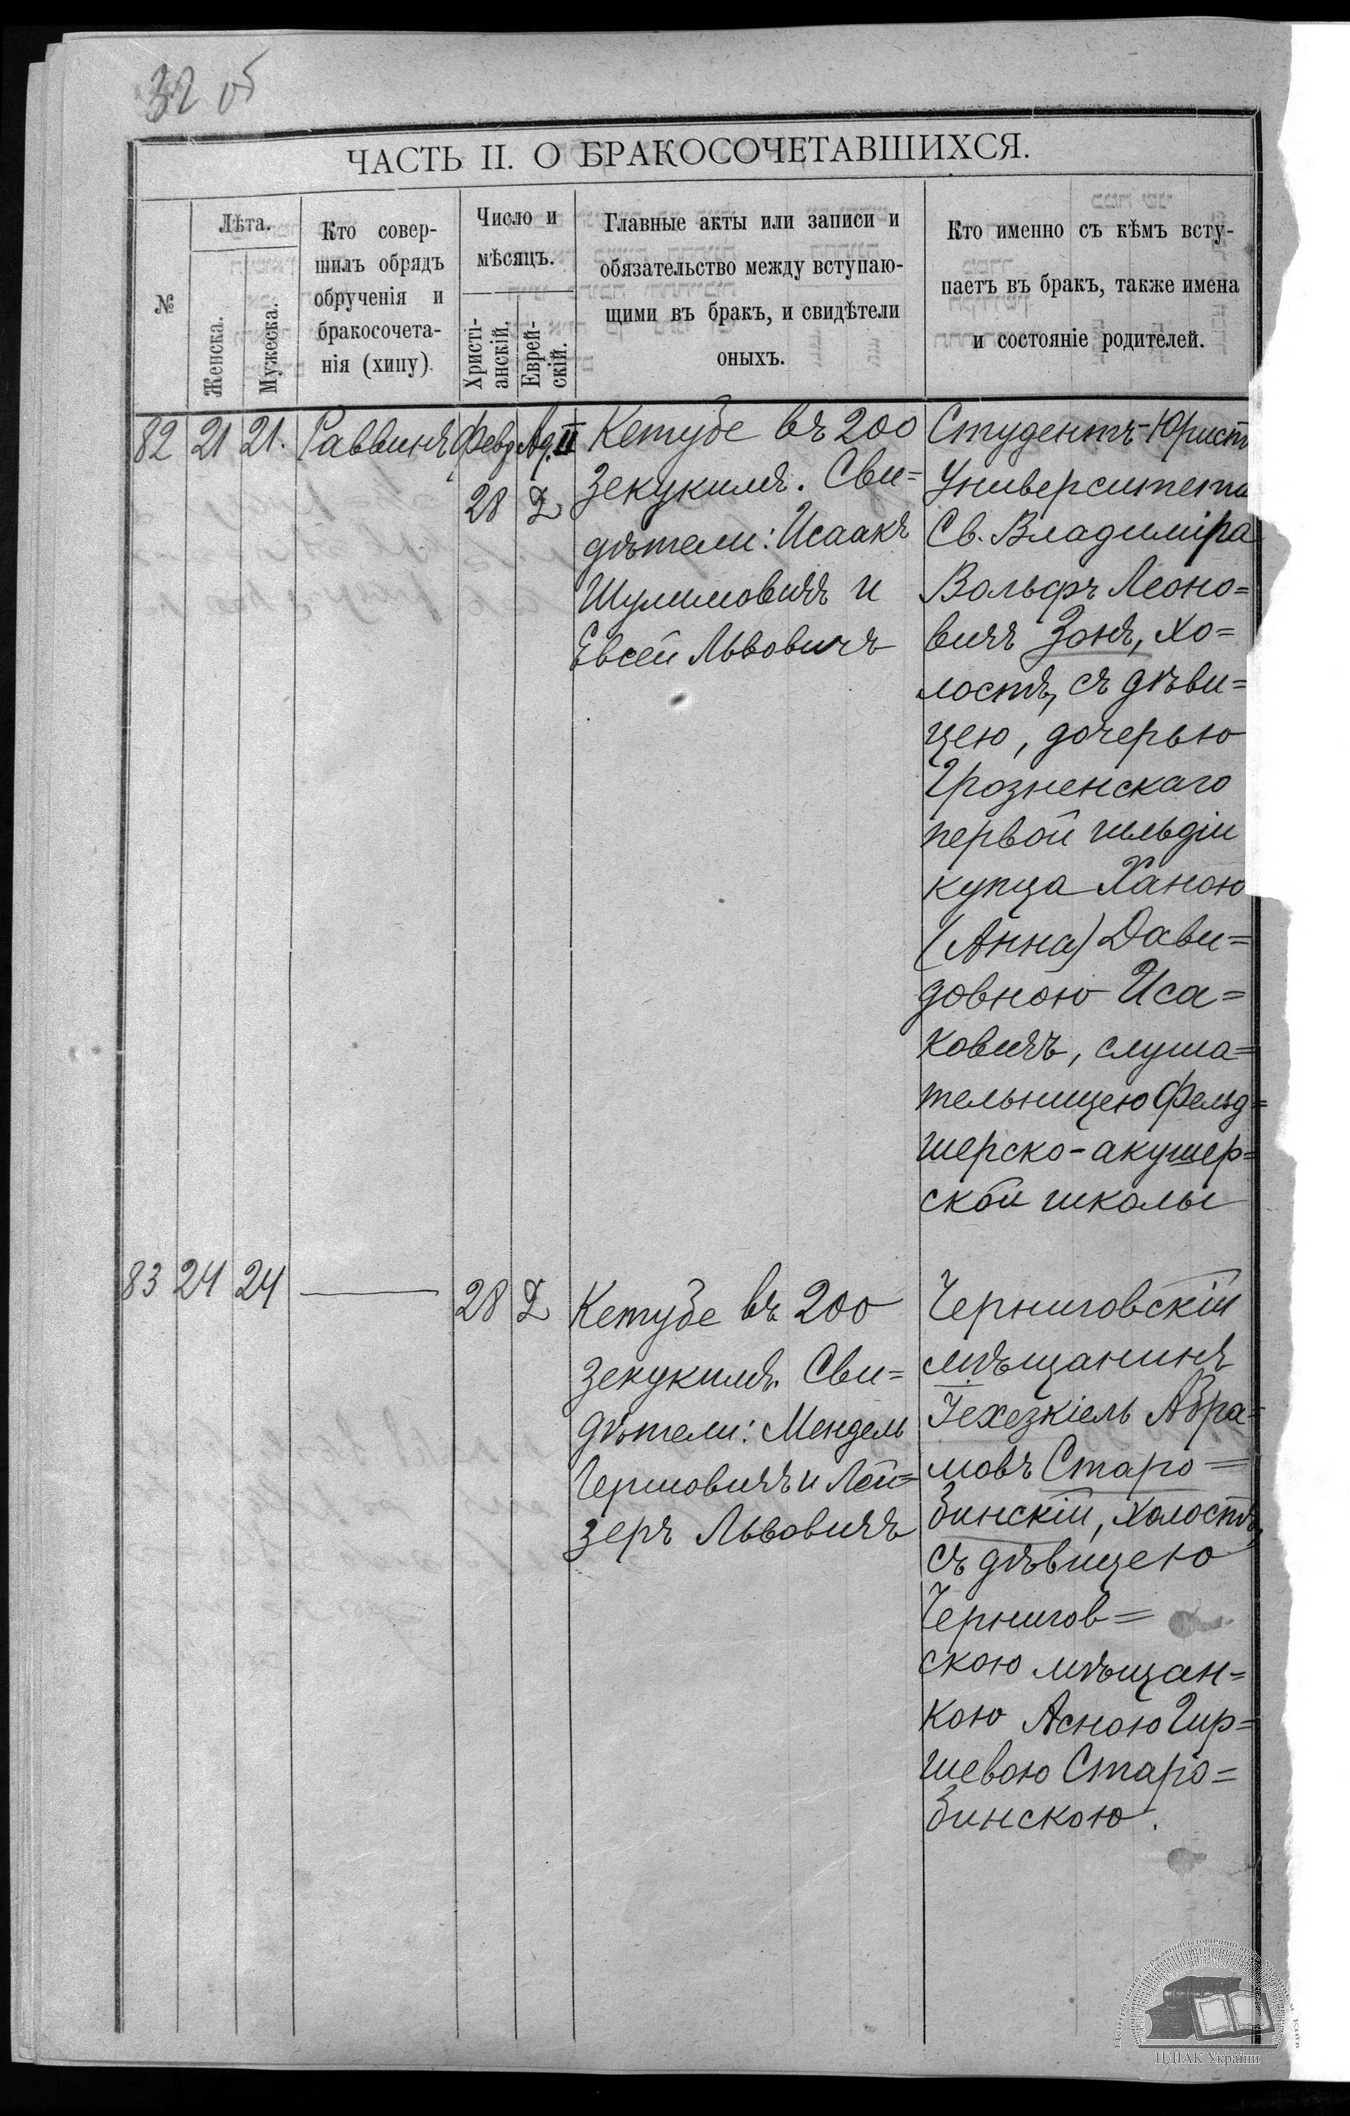 32 об
ЧАСТЬ II. О БРАКОСОЧЕТАВШИХСЯ.
№
Лѣта.
Женска.
Мужеска.
Кто совер-
шилъ обрядъ
обрученія и
бракосочета-
нія (хипу).
Число и
мѣсяцъ.
Христі-
анскій.
Еврей-
скій.
Главные акты или записи и
обязательство между вступаю-
щими въ бракъ, и свидѣтели
оныхъ.
Кто именно съ кѣмъ всту-
паетъ въ бракъ, также имена
и состояніе родителей.
82 21 21. Раввинъ Февр Ад. II
28
Кетубе въ 200
Зекукимъ. Сви=
дѣтели: Исаакъ
Шулимовичъ и
Евсей Львовичъ
Студентъ-Юристъ
Университета
Св. Владиміра
Вольфъ Леоно=
вичъ Зонъ, хо=
лостъ, съ дѣви=
цею, дочерью
Грозненскаго
первой гильдіи
купца Ханою
(Анна) Дави=
довною Иса=
ковичъ, слуша=
тельницею Фельд=
шерско-акушер=
ской школы
83 24 24
28
Кетубе въ 200
Зекукимъ. Сви=
дѣтели: Мендель
Гершовичъ и Лей=
зеръ Львовичъ
Черниговскій
мѣщанинъ
Іехезкіель Абра=
мовъ Старо=
бинскій, холостъ,
съ дѣвицею
Чернигов=
скою мѣщан=
кою Асною Гир=
шевою Старо=
бинскою.
ЦДІАК України